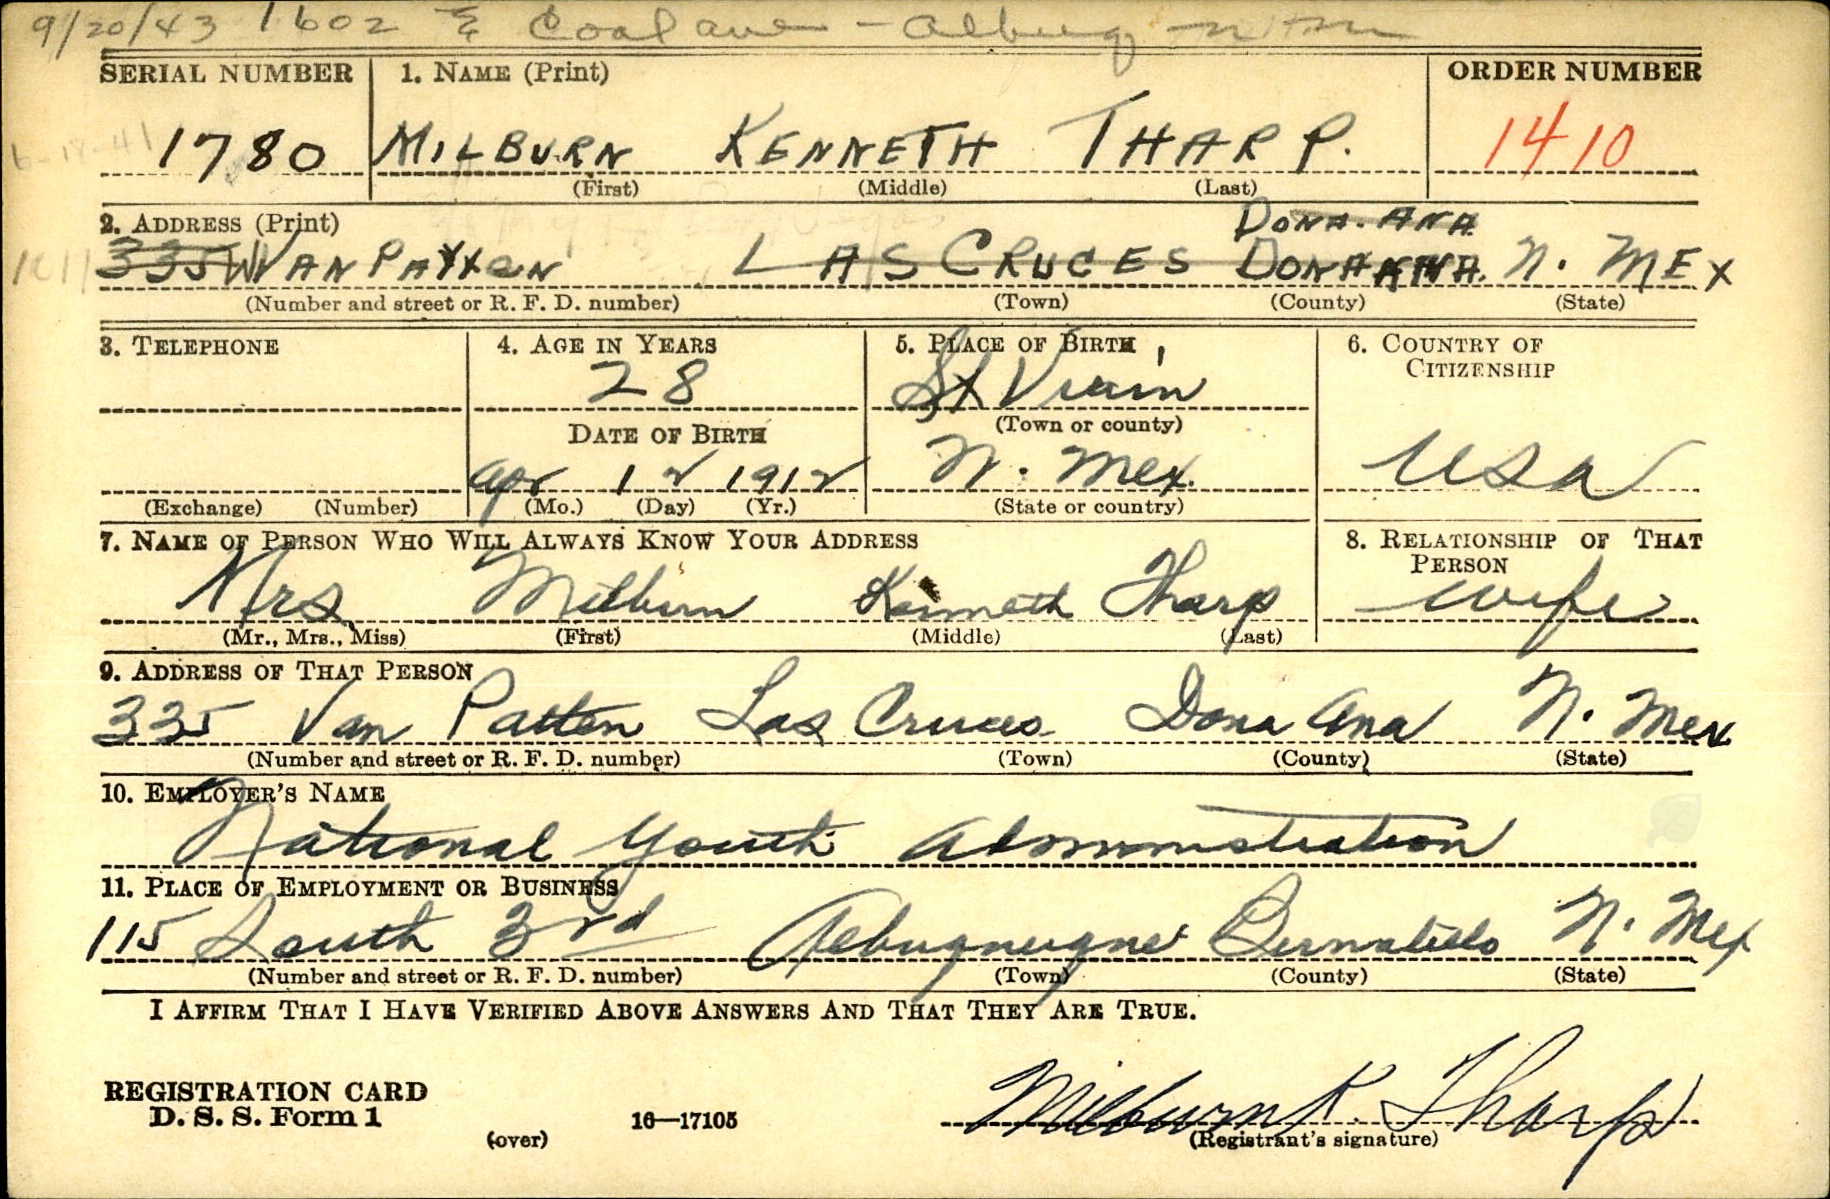 9/20/43 1602 E Coal ave - Albuq N Mex
SERIAL NUMBER 1. NAME (Print) ORDER NUMBER
6-18-41 1780 MILBURN KENNETH THARP. 1410
(First) (Middle) (Last)
2. ADDRESS (Print) DONA. ANA
335 VAN PATTEN LAS CRUCES DONA ANA. N. MEX
(Number and street or R. F. D. number) (Town) (County) (State)
3. TELEPHONE 4. AGE IN YEARS 5. PLACE OF BIRTH 6. COUNTRY OF CITIZENSHIP
28 St Vrain
DATE OF BIRTH (Town or county)
Apr 12 1912 N. Mex. USA
(Exchange) (Number) (Mo.) (Day) (Yr.) (State or country)
7. NAME OF PERSON WHO WILL ALWAYS KNOW YOUR ADDRESS 8. RELATIONSHIP OF THAT PERSON
Mrs Milburn Kenneth Tharp wife
(Mr., Mrs., Miss) (First) (Middle) (Last)
9. ADDRESS OF THAT PERSON
335 Van Patten Las Cruces Dona Ana N. Mex
(Number and street or R. F. D. number) (Town) (County) (State)
10. EMPLOYER'S NAME
National Youth Administration
11. PLACE OF EMPLOYMENT OR BUSINESS
115 South 3rd Albuquerque Bernalillo N. Mex
(Number and street or R. F. D. number) (Town) (County) (State)
I AFFIRM THAT I HAVE VERIFIED ABOVE ANSWERS AND THAT THEY ARE TRUE.
REGISTRATION CARD
D. S. S. Form 1 16—17105 Milburn K. Tharp
(over) (Registrant's signature)